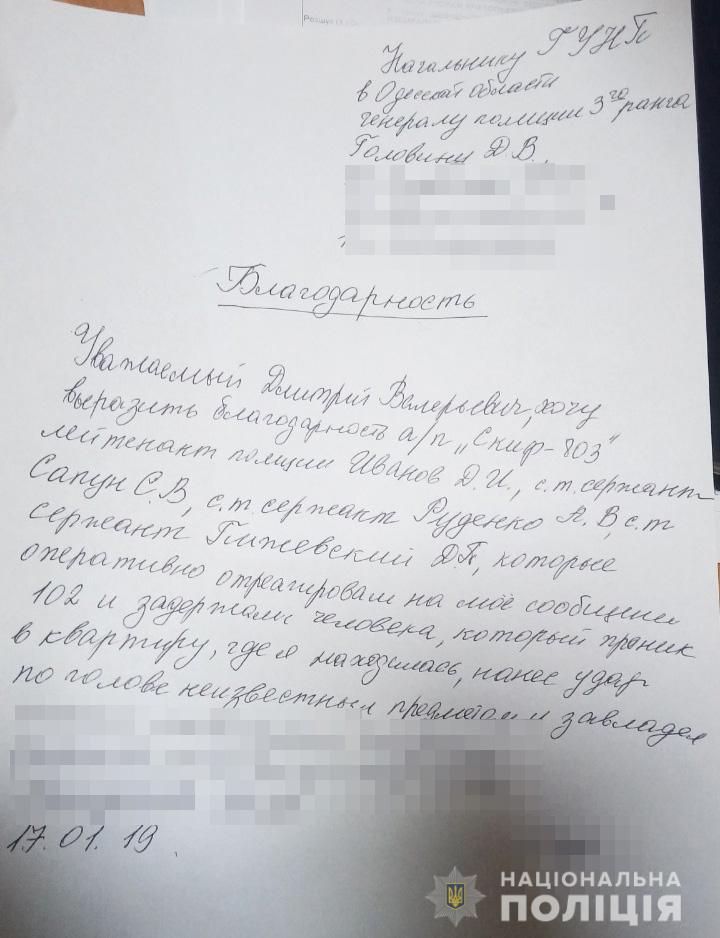 Розшук
Начальнику ГУНП
в Одесской области
генералу полиции 3го ранга
Головину Д.В.,
Благодарность
Уважаемый Дмитрий Валерьевич, хочу
выразить благодарность а/п „Скиф-803"
лейтенант полиции Иванов Д.И., с.т. сержант
Сапун С.В, с.т. сержант Руденко А.В, с.т
сержант Гижевский Д.П, которые
оперативно отреагировали на моё сообщение
102 и задержали человека, который проник
в квартиру, где я находилась, нанес удар
по голове неизвестным предметом и завладел
17.01.19
НАЦІОНАЛЬНА
ПОЛІЦІЯ